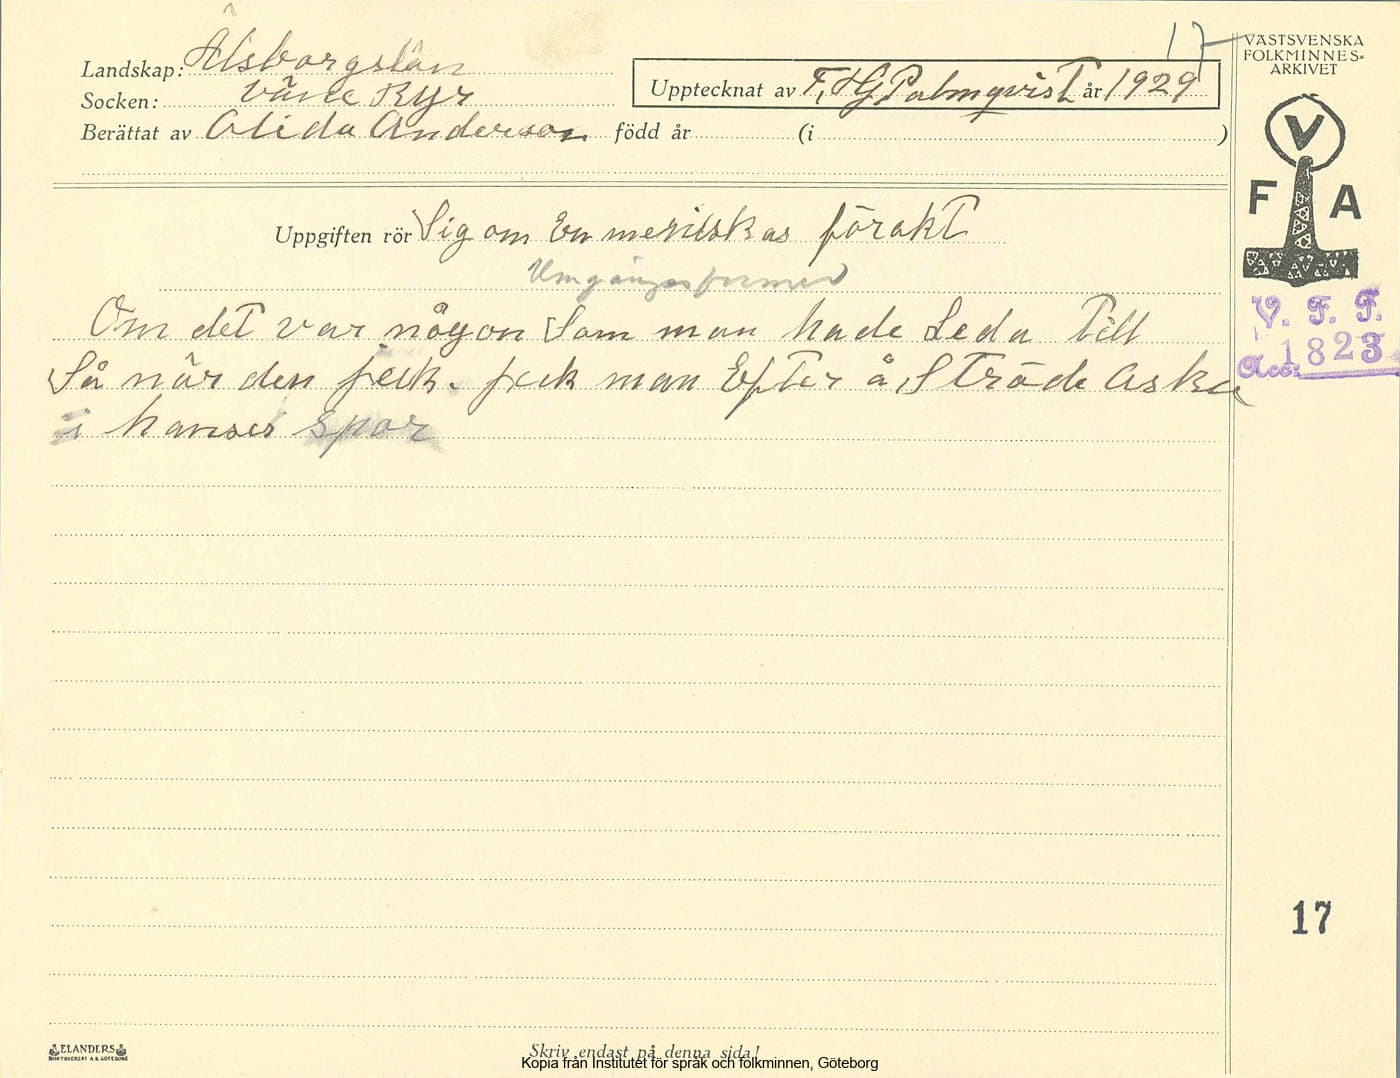 17
VÄSTSVENSKA
FOLKMINNES-
ARKIVET
Landskap: Älsborgslän
Upptecknat av F, HG, Palmqvist år 1929
Socken: Väne Ryr
Berättat av Alida Anderson född år (i )
V
F A
Uppgiften rör Sig om En meniskas förakt
Umgängsformer
V. F. F.
Om det var någon Som man hade Leda till
Acc: 1823
Så när den feck. feck man Efter å Ströde Aska
i hanses spor
17
ELANDERS
BOKTRYCKERI A.B. GÖTEBORG
Skriv endast på denna sida!
Kopia från Institutet för språk och folkminnen, Göteborg